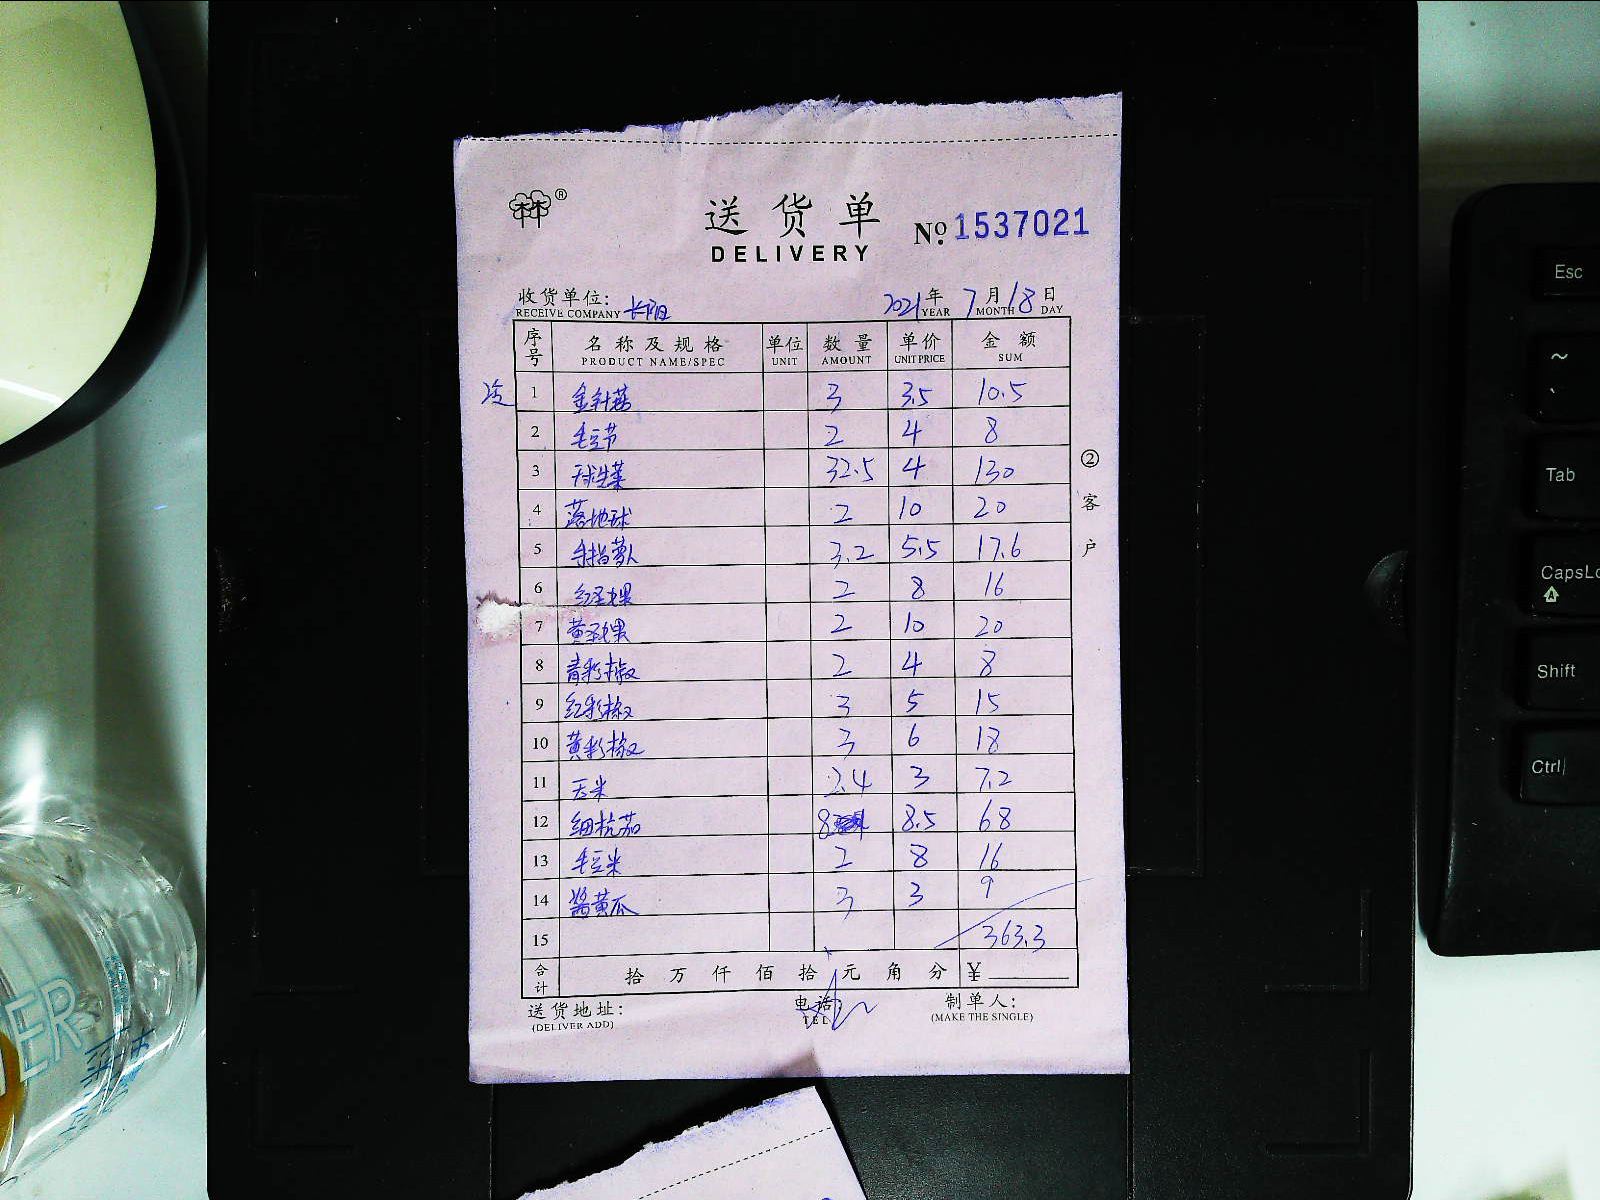 林林®
送货单
DELIVERY
No. 1537021
收货单位: 长阳 2021年 7月 18日
RECEIVE COMPANY YEAR MONTH DAY
序号 名称及规格 单位 数量 单价 金额
PRODUCT NAME/SPEC UNIT AMOUNT UNIT PRICE SUM
1 金针菇 3 3.5 10.5
2 毛豆节 2 4 8
3 球生菜 32.5 4 130
4 落地球 2 10 20
5 手指萝卜 3.2 5.5 17.6
6 红圣女果 2 8 16
7 黄圣女果 2 10 20
8 青彩椒 2 4 8
9 红彩椒 3 5 15
10 黄彩椒 3 6 18
11 玉米 2.4 3 7.2
12 细杭茄 8 8.5 68
13 毛豆米 2 8 16
14 酱黄瓜 3 3 9
15 363.3
合计 拾万仟佰拾元角分 ¥
送货地址: 电话: 制单人:
(DELIVER ADD) TEL (MAKE THE SINGLE)
②客户
Esc
~
Tab
CapsLo
Shift
Ctrl
ER